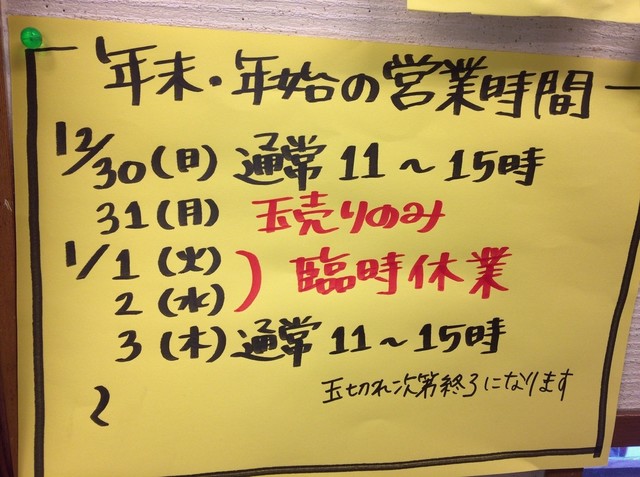 年末・年始の営業時間
12/30(日) 通常 11～15時
31(月) 玉売りのみ
1/1(火) ) 臨時休業
2(水)
3(木) 通常 11～15時
〜
玉切れ次第終了になります